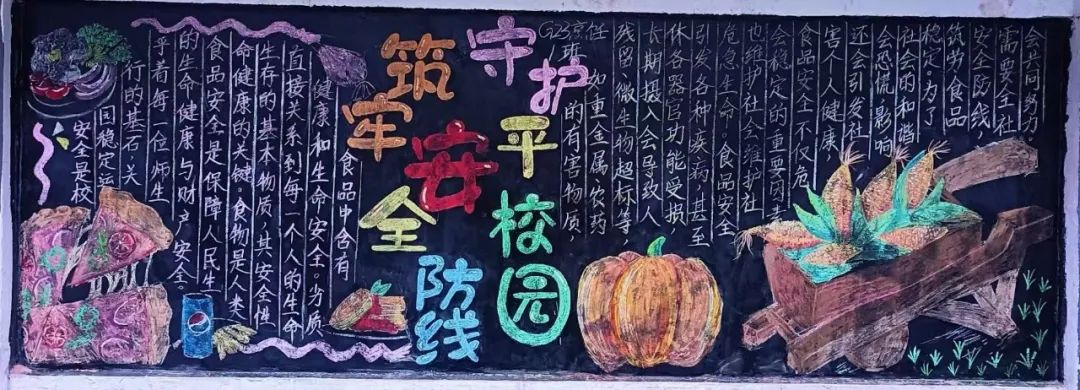 守护平安校园
筑牢安全防线
G23烹饪
1班
安全是校
园稳定运
行的基石,关
乎着每一位师生
的生命健康与财产安全。
食品安全是保障人民生
命健康的关键。食物是人类
生存的基本物质,其安全性
直接关系到每一个人的生命
健康和生命安全。劣质
食品中含有
的有害物质,
如重金属、农药
残留、微生物超标等,
长期摄入会导致人
休各器官功能受损,
引发各种疾病,甚至
危急生命。食品安全
也维护社会维护社
会稳定的重要因素
食品安全不仅危
害个人健康,
还会引发社
会恐慌,影响
社会的和谐
稳定。为了
筑劳食品
安全防线,
需要全社
会共同努力